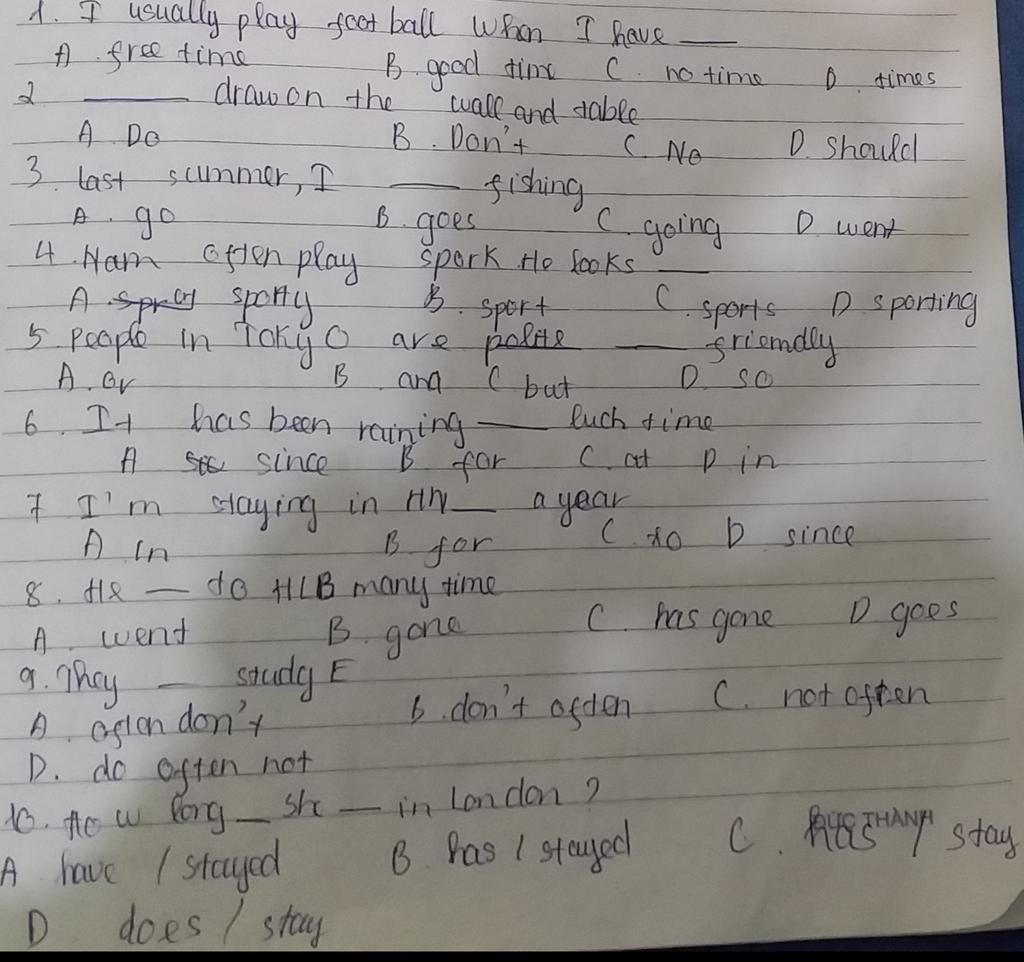 1. I usually play foot ball When I have __
A. free time B. good time C. no time D. times
2 ____ draw on the wall and table
A. Do B. Don't C. No D. should
3. last summer, I ___ fishing
A. go B. goes C. going D went
4. Nam often play spork He looks ___
A sporty B. sport C. sports D sporting
5. People in Tokyo are polite ___ friemdly
A. or B and C but D. so
6. It has been raining ___ luch time
A since B for C. at D in
7 I'm staying in HN __ a year
A In B for C. to D since
8. He __ to HLB many time
A. went B. gone C. has gone D goes
9. They __ study E
A. often don't B. don't often C. not often
D. do often not
10. How long _ she __ in london ?
A have / stayed B has / stayed C. / stay
D does / stay